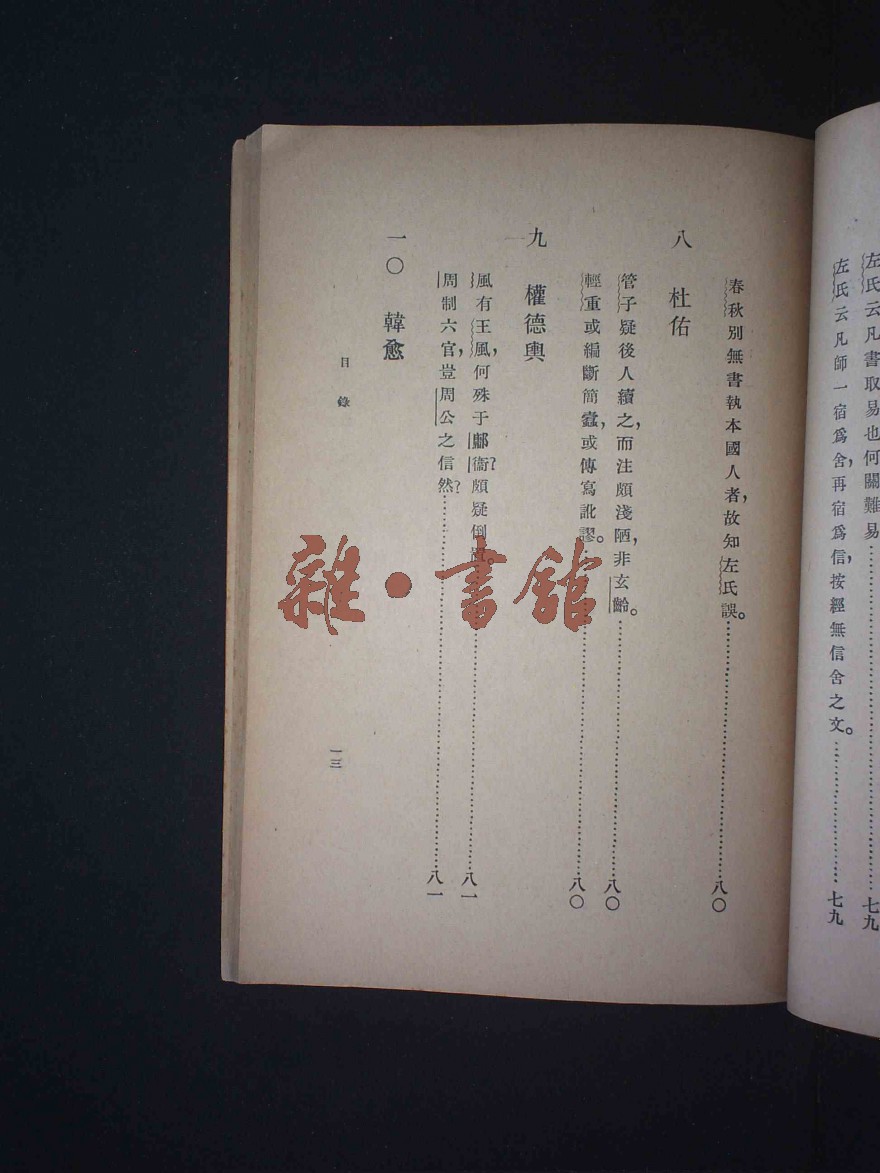 左氏云凡書取易也何關難易……七九
左氏云凡師一宿爲舍，再宿爲信，按經無信舍之文。……七九
春秋別無書執本國人者，故知左氏誤。……八〇
八 杜佑
管子疑後人續之，而注頗淺陋，非玄齡。……八〇
輕重或編斷簡蠹，或傳寫訛謬。……八〇
九 權德輿
風有王風，何殊于鄘衞？頗疑倒置……八一
周制六官，豈周公之信然？……八一
一〇 韓愈
目錄
一三
雜·書館